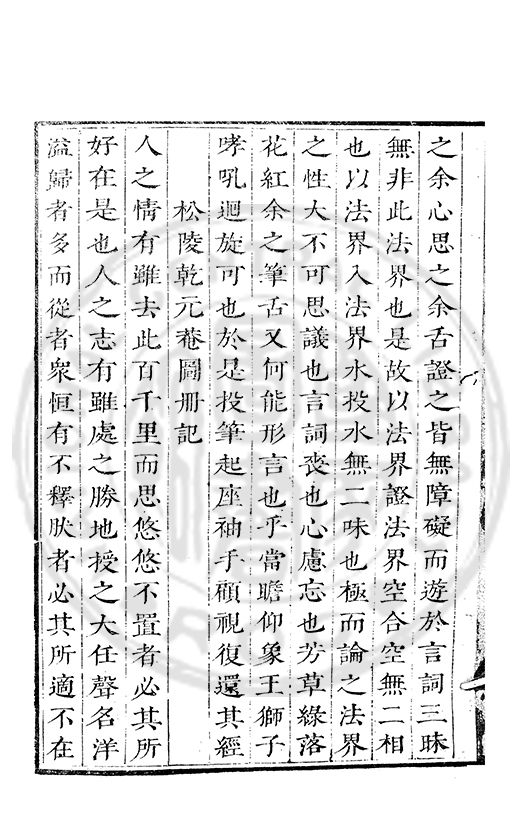 之余心思之余舌證之皆無障礙而遊於言詞三昧
無非此法界也是故以法界證法界空合空無二相
也以法界入法界水投水無二味也極而論之法界
之性大不可思議也言詞喪也心慮忘也芳草綠落
花紅余之筆舌又何能形言也乎當瞻仰象王獅子
哮吼迴旋可也於是投筆起座袖手顧視復還其經
松陵乾元菴圖冊記
人之情有雖去此百千里而思悠悠不置者必其所
好在是也人之志有雖處之勝地授之大任聲名洋
溢歸者多而從者衆恒有不釋肰者必其所適不在